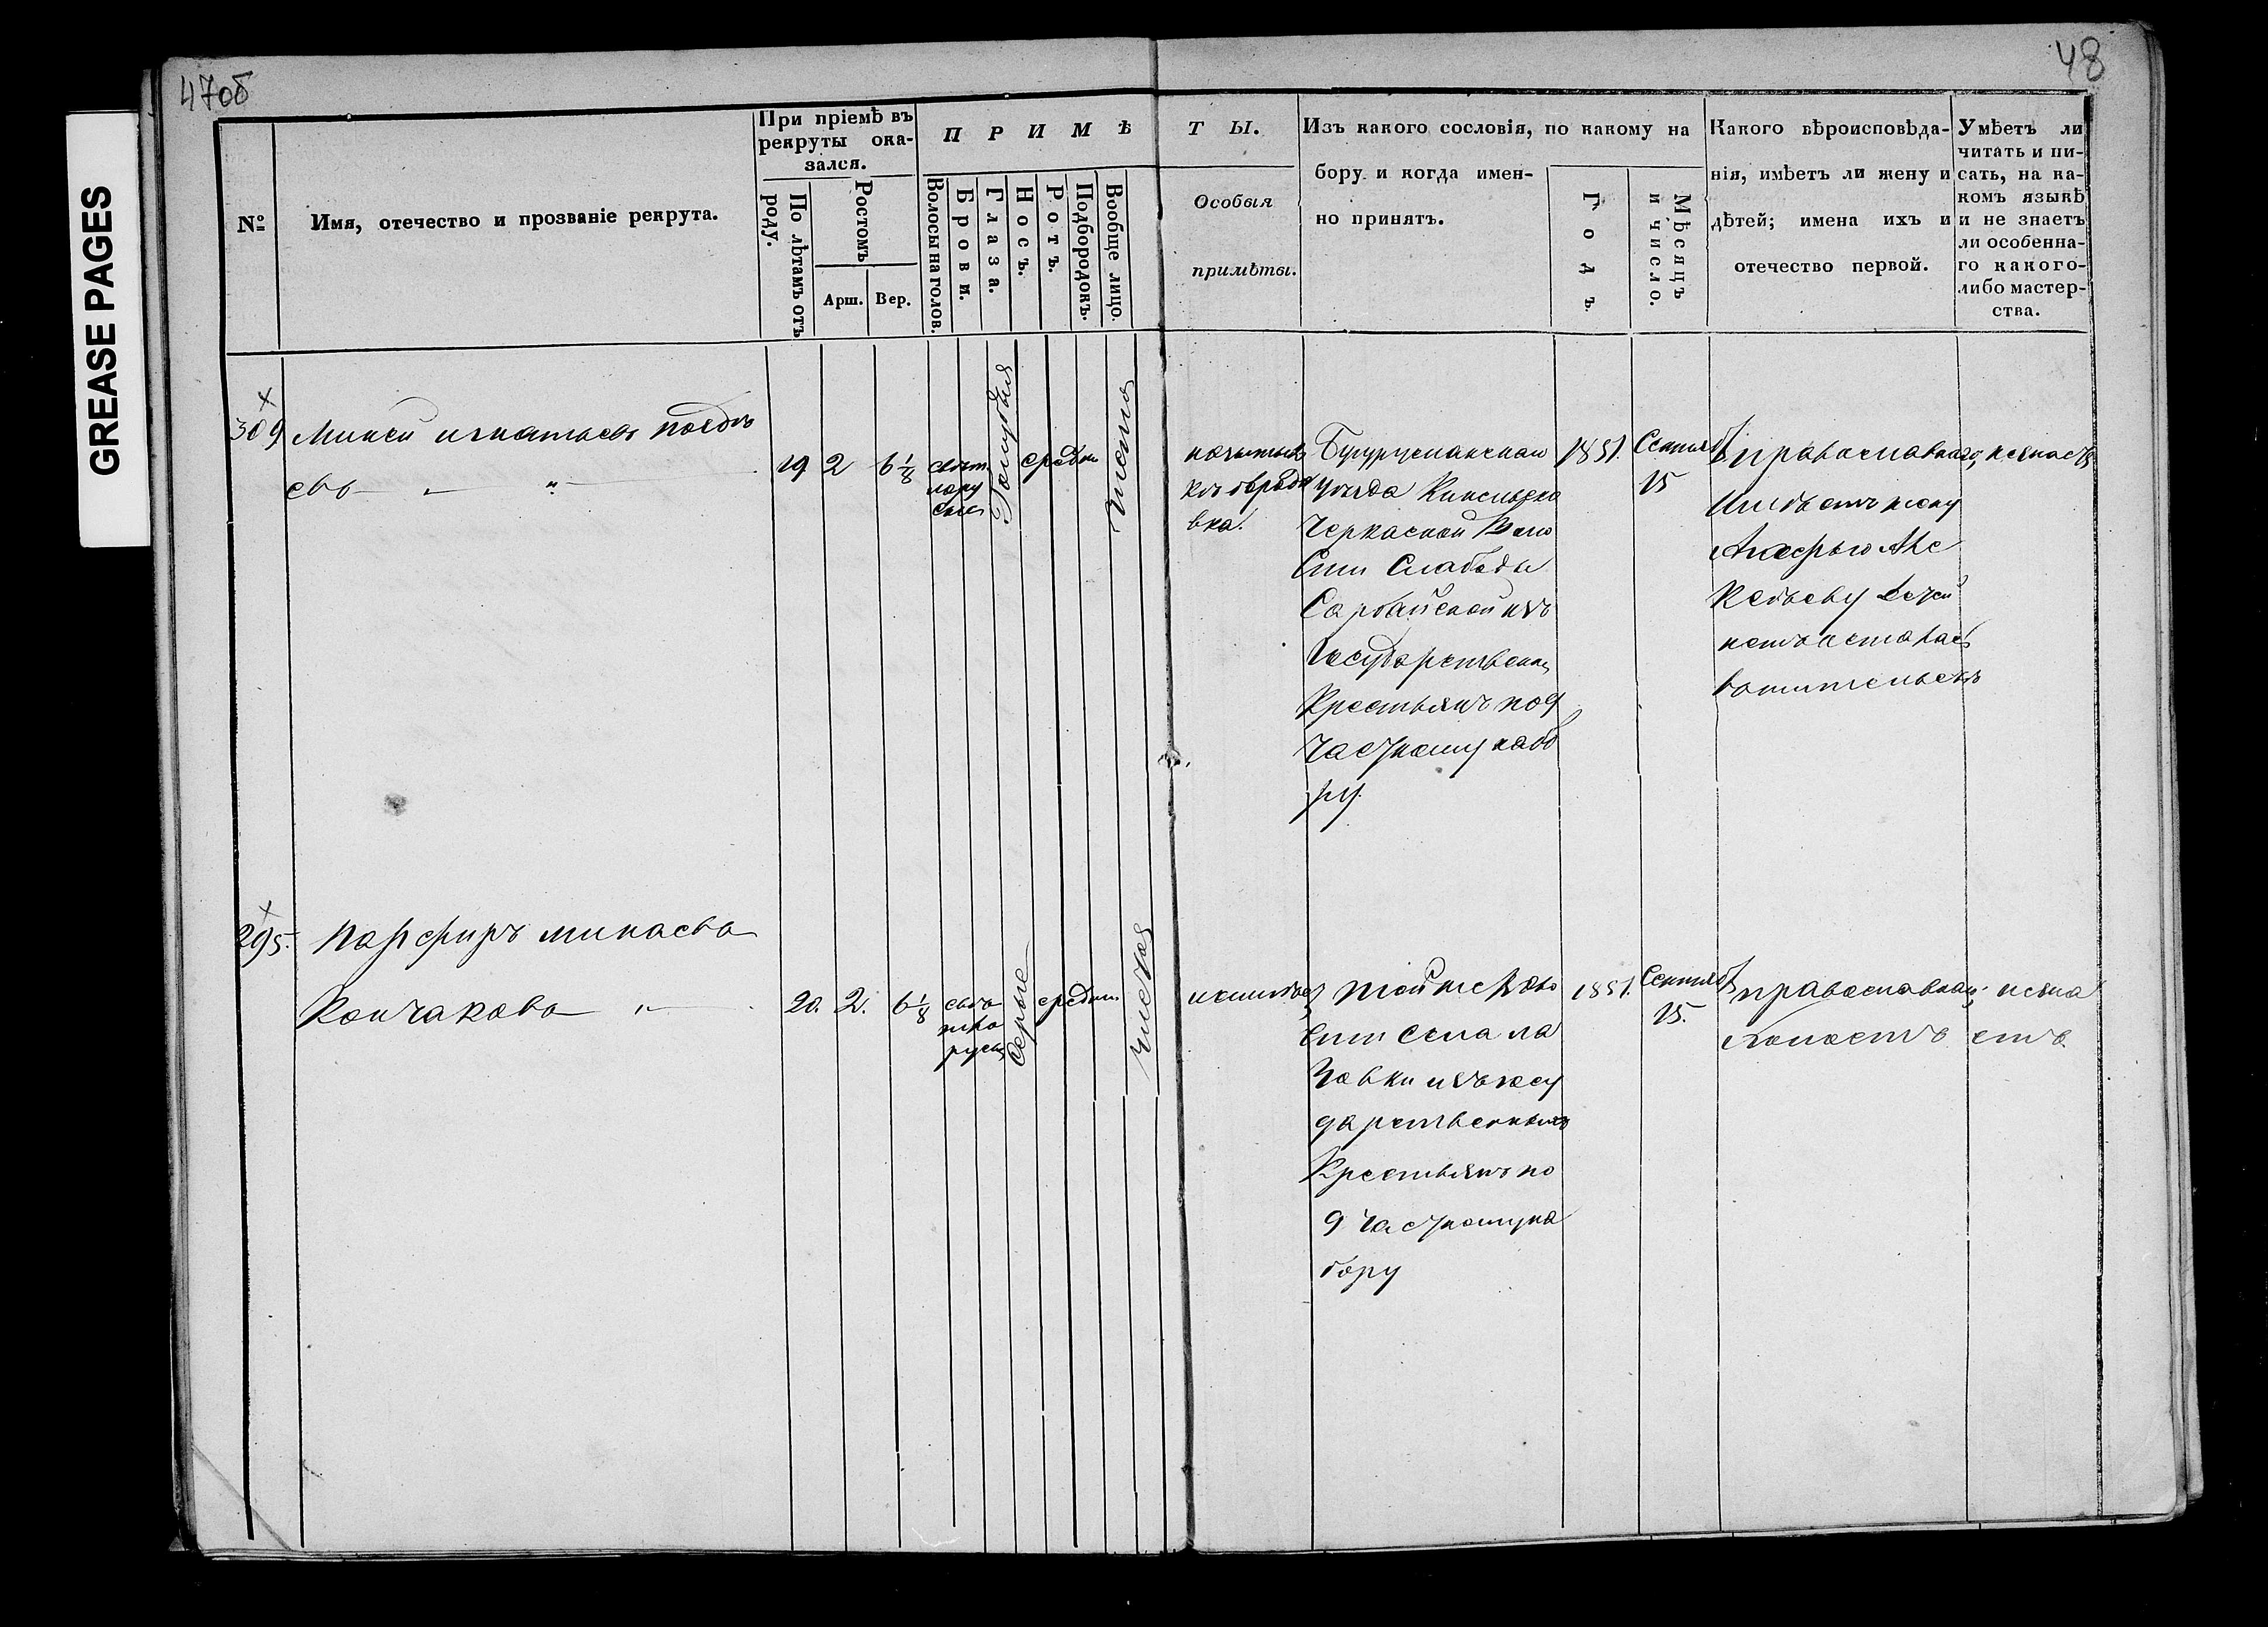 47об
48
GREASE PAGES
№
Имя, отечество и прозваніе рекрута.
При пріемѣ въ
рекруты ока-
зался.
По лѣтамъ отъ
роду.
Ростомъ
Арш.
Вер.
ПРИМѢ
ТЫ.
Волосы на голов.
Брови.
Глаза.
Носъ.
Ротъ.
Подбородокъ.
Вообще лицо.
Особыя
примѣты.
Изъ какого сословія, по какому на
бору и когда имен-
но принятъ.
Годъ.
Мѣсяцъ
и число.
Какого вѣроисповѣда-
нія, имѣетъ ли жену и
дѣтей; имена ихъ и
отечество первой.
Умѣетъ ли
читать и пи-
сать, на ка-
комъ языкѣ
и не знаетъ
ли особенна-
го какого-
либо мастер-
ства.
309
Микей игнатьевъ
евъ
19 2 6 1/8
Голубыя
средн
чисто
Бугурусланскаго
уѣзда
Черкаской Воло
сти Слабоды
Сарбайской изъ
Государственн
Крестьянъ по 9
частному набо
ру.
1851.
Сентяб
15
православнаго,
Имѣетъ жену
нетъ
295.
Парфиръ минаева
Кончакова
20. 2. 6 1/8
свѣ
тло
русы
Серые
средн
чистое
той же Воло
сти села ла
изъ госу
дарственныхъ
Крестьянъ по
9 частному на
бору
1851.
Сентяб
15.
православнаг
Холостъ